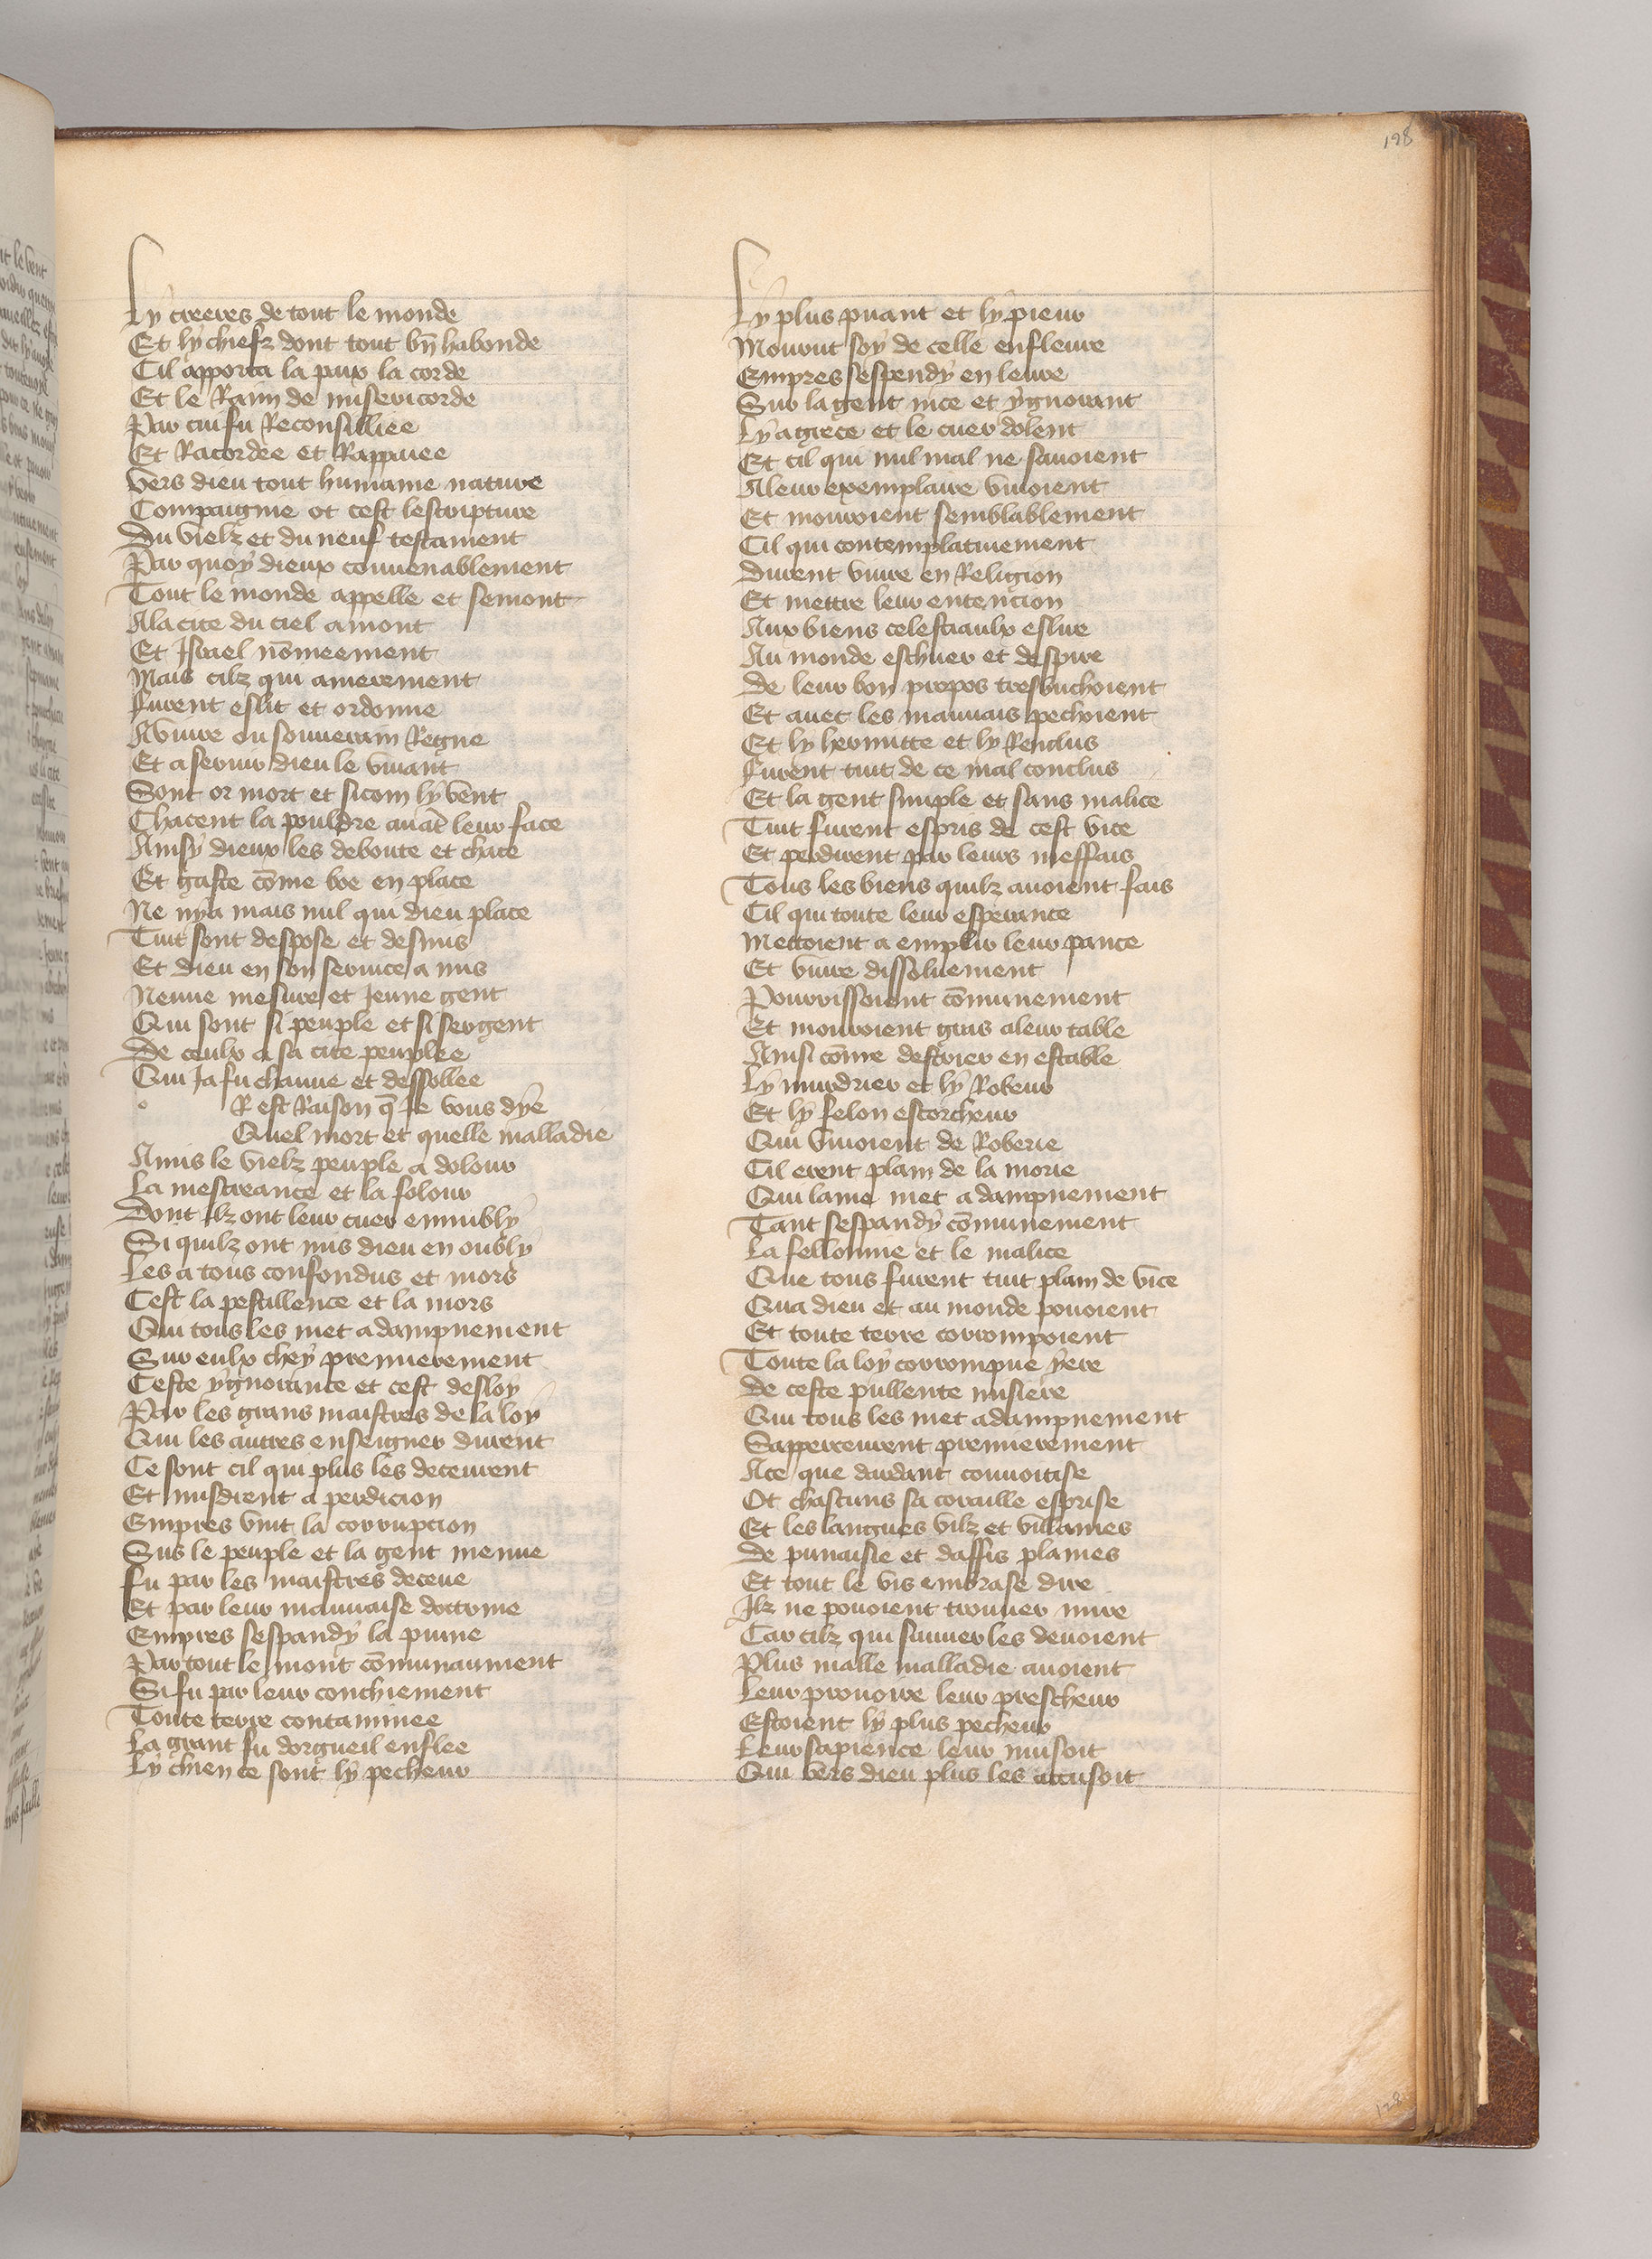 198
Ly creeres de tout le monde
Et ly chiefz dont tout bn̄ habonde
Cil apporta la paix la corde
Et le Raim de misericorde
Par cui fu Reconsilliee
Et Racordee et Rappaiee
Vers dieu tout humaine nature
Compaignie ot cest lescripture
Du vielz et du neuf testament
Par quoy dieux convenablement
Tout le monde appelle et semont
Ala cite du ciel amont
Et Israel nōmeement
Mais cilz qui amerement
Furent eslit et ordonne
A vivre ou souverain Regne
Et a servir dieu le vivant
Sont or mort et sicom ly vent
Chacent la pouldre avāt leur face
Ainsy dieux les deboute et chace
Et gaste cōme boe en place
Ne nya mais nul qui dieu place
Tuit sont despose et desmis
Et dieu en son service a mis
Neuve mesure et Jeune gent
Qui sont si peuple et si sergent
De ceulx a sa cite peuplee
Qui Ja fu chauve et deffollee
R est Raison q̄ Je vous dye
Quel mort et quelle malladie
Amis le vielz peuple a dolour
La mescreance et la folour
Dont Ilz ont leur cuer ennubly
Si quilz ont mis dieu en oubly
Les a tous confondus et mors
Cest la pestillence et la mors
Qui tous les met adampnement
Sur eulx chey premierement
Ceste ygnorance et cest desloy
Par les grans maistres de la loy
Qui les autres enseigner durent
Ce sont cil qui plus les deceurent
Et misdrent a perdicion
Empres vint la corrupcion
Sus le peuple et la gent menue
Fu par les maistres deceue
Et par leur mauvaise doctrine
Empres sespandy la
Par tout le mont cōmunaument
Si fu par leur conchiement
Toute terre contaminee
La grant fu dorgueil enflee
Ly chien ce sont ly pecheur
Ly plus puant et ly pieur
Mourut soy de celle enfleure
Empres sespendy en leure
Sur la gent nice et ygnorant
Ly agrece et le cuer dolent
Et cil qui nul mal ne savoient
Aleur exemplaire vivoient
Et mouroient semblablement
Cil qui contemplativement
Durent vivre en Religion
Et mettre leur entencion
Aux biens celestiaulx eslire
Au monde eschuer et despire
De leur bon propos tresbuchoient
Et avec les mauvais pechoient
Et ly hermitte et ly Renclus
Furent tuit de ce mal conclus
Et la gent simple et sans malice
Tuit furent espris de cest vice
Et perdirent par leurs meffais
Tous les biens quilz avoient fais
Cil qui toute leur esperance
Mettoient a emplir leur pance
Et vivre dissoluement
Pourrissoient cōmunement
Et mouroient gras aleur table
Ainsi cōme destrier en estable
Ly murdrier et ly Robeur
Et ly felon escorcheur
Qui vivoient de Roberie
Cil erent plain de la morie
Qui lame met a dampnement
Tant sespandy cōmunement
La fellonnie et le malice
Que tous furent tuit plain de vice
Qua dieu et au monde pouoient
Et toute terre corrompoient
Toute la loy corrompue yere
De ceste pullente misiere
Qui tous les met adampnement
Sapperceurent premierement
Ace que dardant convoitise
Ot chascuns sa coraille esprise
Et les langues vilz et vilaines
De punaisie et daffis plaines
Et tout le vis embrase dire
Ilz ne pouoient trouver mire
Car cilz qui sauver les devoient
Plus malle malladie avoient
Leur prouoire leur prescheur
Estoient ly plus pecheur
Leur sapience leur nuisoit
Qui vers dieu plus les accusoit
128